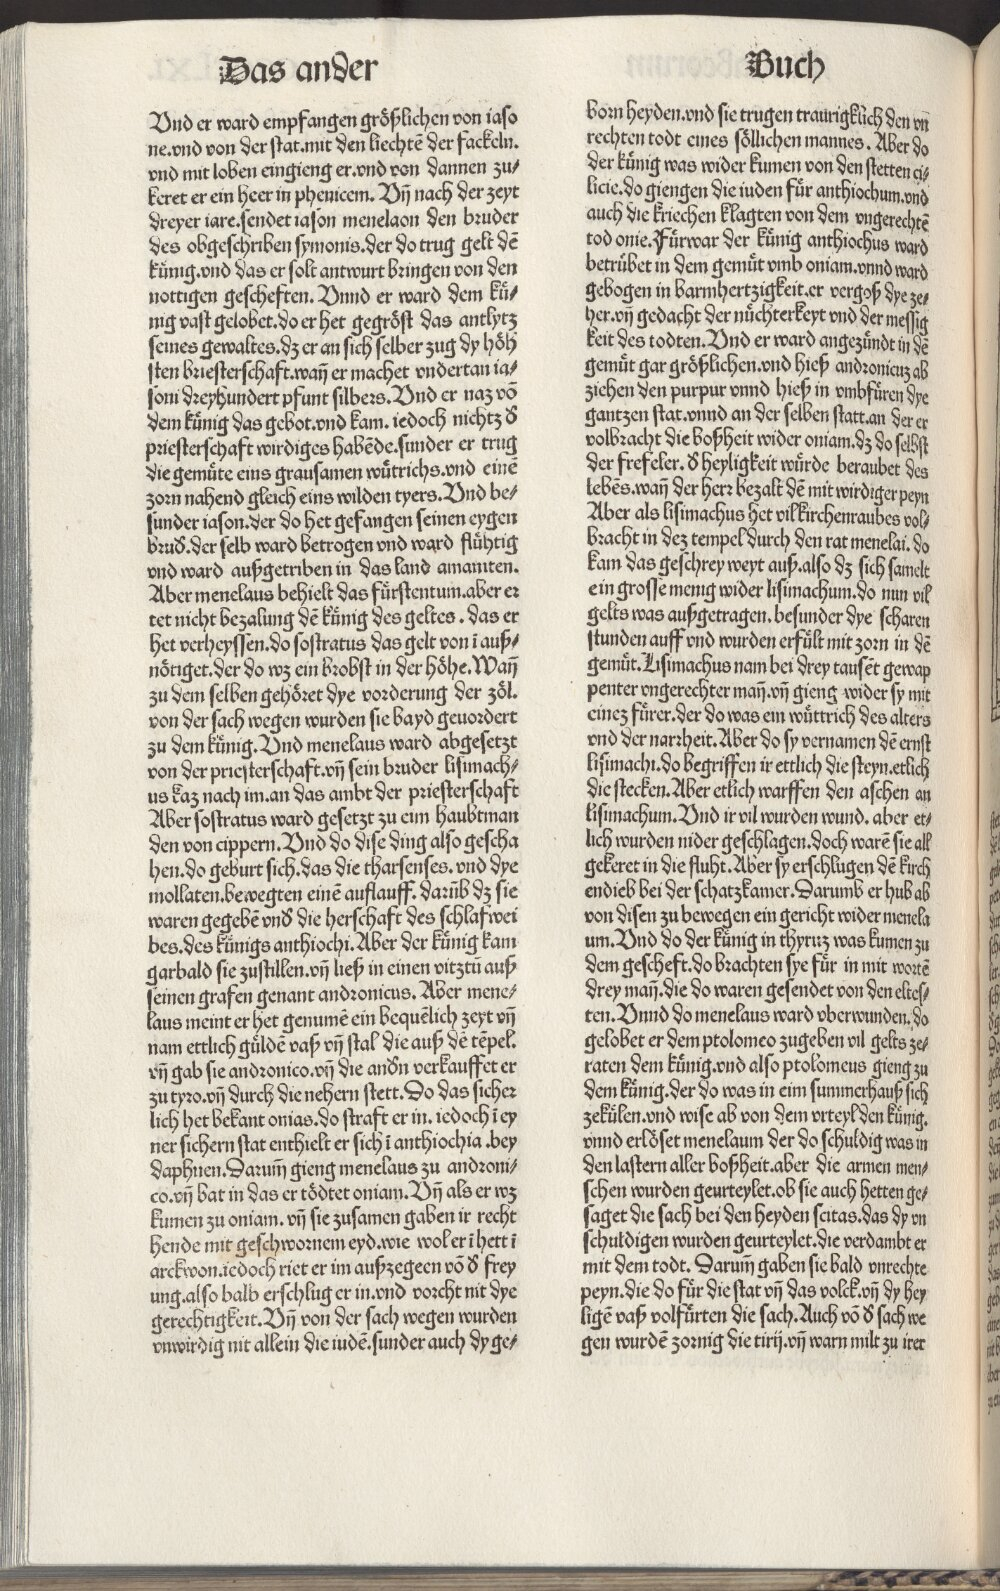 Das ander
Buch
Vnd er ward empfangen größlichen von iaso
ne.vnd von der stat.mit den liechtẽ der fackeln.
vnd mit loben eingieng er.vnd von dannen zu⸗
keret er ein heer in phenicem. Vñ nach der zeyt
dreyer iare.sendet iason menelaon den bruder
des obgeschriben symonis.der do trug gelt dẽ
kúnig.vnd das er solt antwurt bringen von den
nottigen gescheften. Vnnd er ward dem kú⸗
nig vast gelobet.do er het gegrőst das antlytz
seines gewaltes.dz er an sich selber zug dy hőh
sten briesterschaft.wañ er machet vndertan ia⸗
soni dreyhundert pfunt silbers. Vnd er naz võ
dem kúnig das gebot.vnd kam. iedoch nichtz d̕
priesterschaft wirdiges habẽde.sunder er trug
die gemúte eins grausamen wútrichs.vnd einẽ
zorn nahend gleich eins wilden tyers. Vnd be⸗
sunder iason.der do het gefangen seinen eygen
brud̕.der selb ward betrogen vnd ward flúhtig
vnd ward außgetriben in das land amaniten.
Aber menelaus behielt das fúrstentum.aber er
tet nicht bezalung dẽ kúnig des geltes. das er
het verheyssen.do sostratus das gelt von ī auß⸗
nőtiget.der do wz ein brobst in der hőhe. Wañ
zu dem selben gehőret dye vorderung der zől.
von der sach wegen wurden sie bayd geuordert
zu dem kúnig. Vnd menelaus ward abgesetzt
von der priesterschaft.vñ sein bruder lisimach⸗
us kaz nach im.an das ambt der priesterschaft
Aber sostratus ward gesetzt zu eim haubtman
den von cippern. Vnd do dise ding also gescha
hen.do geburt sich.das die tharsenses. vnd dye
mollaten.bewegten einẽ auflauff. darũb dz sie
waren gegebẽ vnd̕ die herschaft des schlafwei
bes.des kúnigs anthiochi. Aber der kúnig kam
garbald sie zustillen.vñ ließ in einen vitztũ auß
seinen grafen genant andronicus. Aber mene⸗
laus meint er het genumẽ ein bequẽlich zeyt vñ
nam ettlich gúldẽ vaß vñ stal die auß dẽ tẽpel.
vñ gab sie andronico.vñ die and̕n verkauffet er
zu tyro.vñ durch die nehern stett. Do das sicher
lich het bekant onias.do straft er in. iedoch ī ey
ner sichern stat enthielt er sich ī anthiochia .bey
daphnen. Darum̃ gieng menelaus zu androni⸗
co.vñ bat in das er tődtet oniam. Vñ als er wz
kumen zu oniam. vñ sie zusamen gaben ir recht
hende mit geschwornem eyd.wie wol er ī hett ī
arckwon.iedoch riet er im außzegeen võ d̕ frey
ung.also balb erschlug er in.vnd vorcht nit dye
gerechtigkeit. Vñ von der sach wegen wurden
vnwirdig nit allein die iudẽ.sunder auch dy ge⸗
born heyden.vnd sie trugen traurigklich den vn
rechten todt eines sőllichen mannes. Aber do
der kúnig was wider kumen von den stetten ci⸗
licie.do giengen die iuden fúr anthiochum.vnd
auch die kriechen klagten von dem vngerechtẽ
tod onie.Fúrwar der kúnig anthiochus ward
betrúbet in dem gemút vmb oniam.vnnd ward
gebogen in barmhertzigkeit.er vergoß dye ze⸗
her.vñ gedacht der núchterkeyt vnd der messig
keit des todten. Vnd er ward angezúndt in dẽ
gemút gar größlichen.vnd hieß andronicuz ab
ziehen den purpur vnnd hieß in vmbfúren dye
gantzen stat.vnnd an der selben statt.an der er
volbracht die boßheit wider oniam.dz do selbst
der frefeler. d̕ heyligkeit wúrde beraubet des
lebẽs.wañ der herr bezalt dẽ mit wirdiger peyn
Aber als lisimachus het vil kirchenraubes vol⸗
bracht in dez tempel durch den rat menelai. do
kam das geschrey weyt auß.also dz sich samelt
ein grosse menig wider lisimachum.do nun vil
gelts was außgetragen. besunder dye scharen
stunden auff vnd wurden erfúlt mit zorn in dẽ
gemút. Lisimachus nam bei drey tausẽt gewap
penter vngerechter mañ.vñ gieng wider sy mit
einez fúrer.der do was ein wúttrich des alters
vnd der narrheit. Aber do sy vernamen dẽ ernst
lisimachi.do begriffen ir ettlich die steyn.etlich
die stecken. Aber etlich warffen den aschen an
lisimachum. Vnd ir vil wurden wund. aber et⸗
lich wurden nider geschlagen.doch warẽ sie all
gekeret in die fluht. Aber sy erschlugen dẽ kirch
endieb bei der schatzkamer. Darumb er hub ab
von disen zu bewegen ein gericht wider menela
um. Vnd do der kúnig in thyruz was kumen zu
dem gescheft.do brachten sye fúr in mit wortẽ
drey mañ.die do waren gesendet von den eltes⸗
ten. Vnnd do menelaus ward vberwunden.do
gelobet er dem ptolomeo zugeben vil gelts ze⸗
raten dem kúnig.vnd also ptolomeus gieng zu
dem kúnig.der do was in eim summerhauß sich
zekúlen.vnd wise ab von dem vrteyl den kúnig.
vnnd erlőset menelaum der do schuldig was in
den lastern aller boßheit.aber die armen men⸗
schen wurden geurteylet.ob sie auch hetten ge⸗
saget die sach bei den heyden scitas.das dy vn
schuldigen wurden geurteylet.die verdambt er
mit dem todt. Darum̃ gaben sie bald vnrechte
peyn.die do fúr die stat vñ das volck.vñ dy hey
ligẽ vaß volfúrten die sach. Auch võ d̕ sach we
gen wurdẽ zornig die tirij.vñ warn milt zu irer